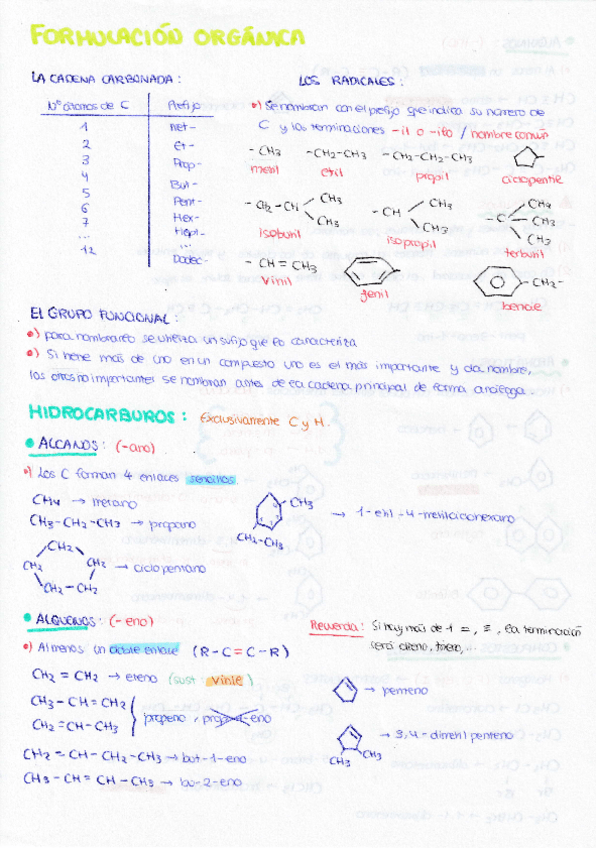 FORMULACIÓN ORGÁNICA
LA CADENA CARBONADA:
Nº átomos de C Prefijo
1 Met-
2 Et-
3 Prop-
4 But-
5 Pent-
6 Hex-
7 Hept-
... ...
12 Dodec-
LOS RADICALES:
•) Se nombran con el prefijo que indica su número de
C y las terminaciones -il o -ilo / nombre común
-CH3 -CH2-CH3 -CH2-CH2-CH3
metil etil propil ciclopentil
-CH2-CH CH3 CH3 -CH CH3 CH3 -C CH3 CH3 CH3
isobutil isopropil terbutil
-CH=CH3 CH2-
vinil fenil bencie
El GRUPO FUNCIONAL:
•) para nombrarlo se utiliza un sufijo que lo caracteriza
•) Si tiene más de uno en un compuesto uno es el más importante y da nombre,
los otros no importantes se nombran antes de la cadena principal de forma análoga.
HIDROCARBUROS: Exclusivamente C y H.
• ALCANOS: (-ano)
•) Los C forman 4 enlaces sencillos.
CH4 → metano
CH3-CH2-CH3 → propano
CH2 CH2 CH2 CH2-CH2 → ciclopentano
CH3 CH2-CH3 → 1-etil-4-metilciclohexano
• ALQUENOS: (-eno)
•) Al menos un doble enlace (R-C=C-R)
CH2=CH2 → eteno (sust. vinile)
CH3-CH=CH2
CH2=CH-CH3
propeno,
CH2=CH-CH2-CH3 → but-1-eno
CH3-CH=CH-CH3 → bu-2-eno
Recuerda: Si hay más de 1 =, ≡, la terminación
será dieno, trieno,...
→ penteno
CH3 CH3 → 3,4-dimetil penteno